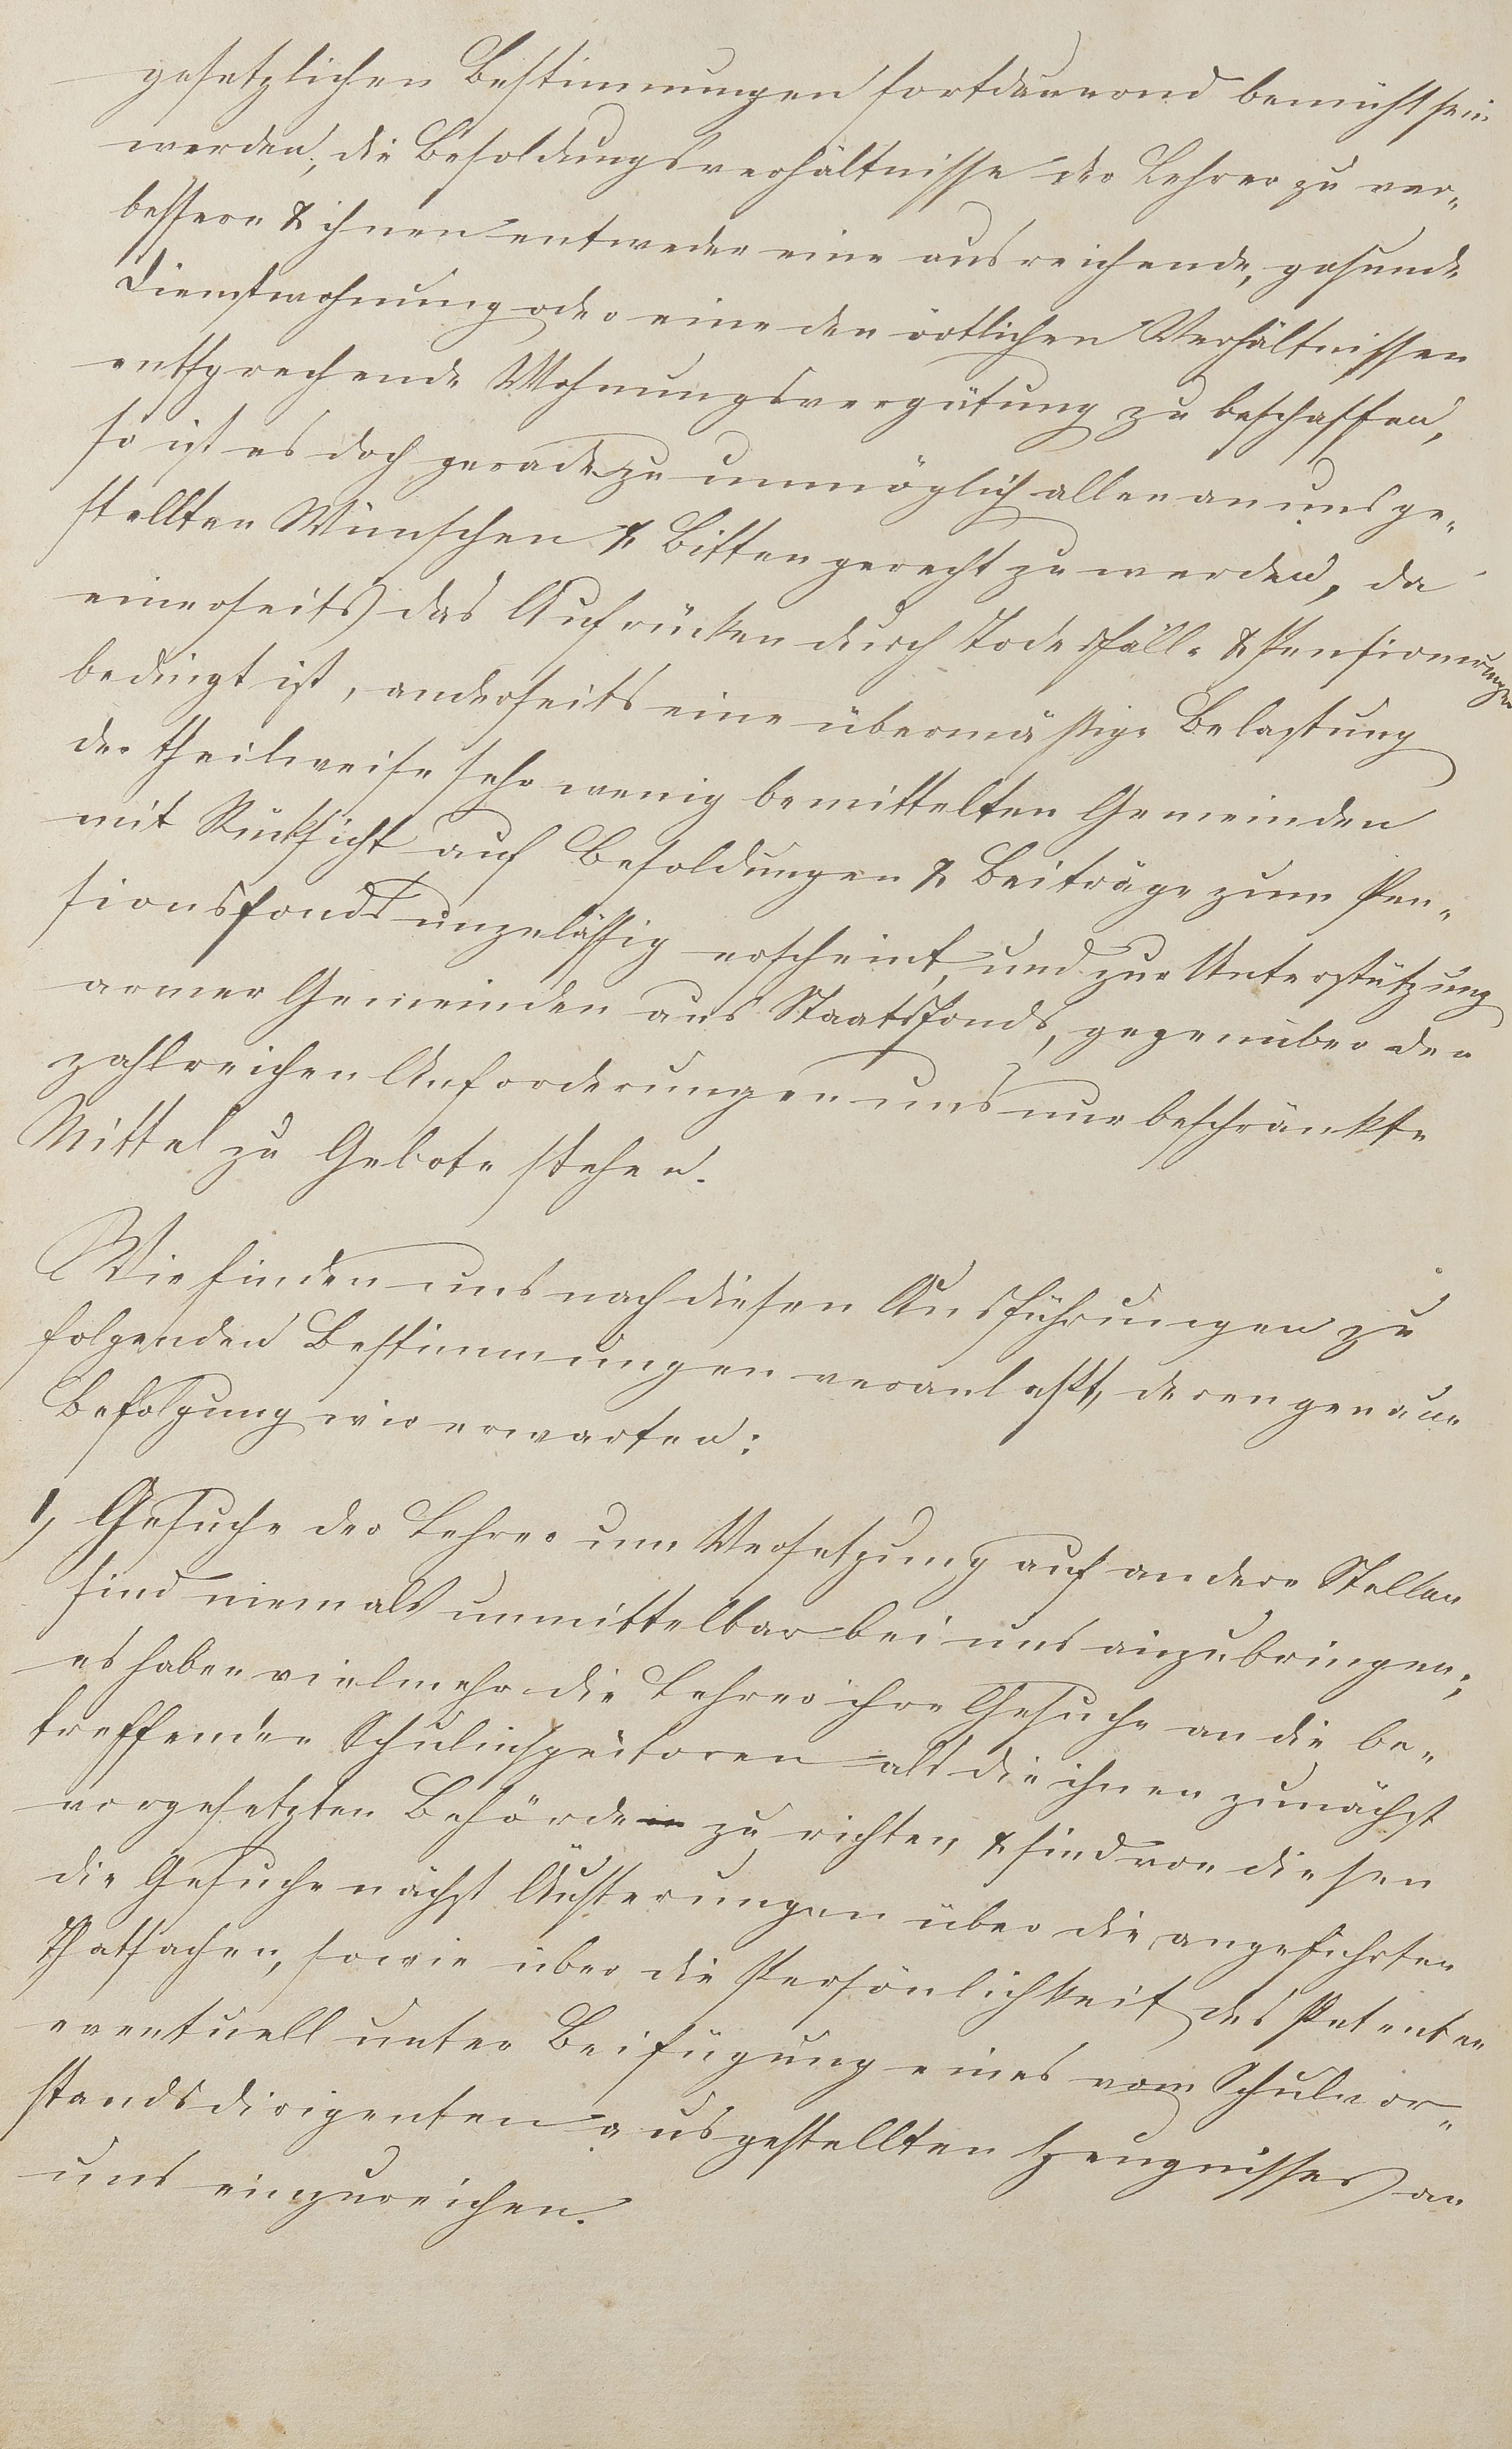 gesetzlichen Bestimmungen fortdauernd bemüht sein
werden, die Besoldungsverhältnisse der Lehrer zu ver-
bessern & ihnen entweder eine ausreichende, gesunde
Dienstwohnung oder eine den örtlichen Verhältnissen
entsprechende Wohnungsvergütung zu beschaffen,
so ist es doch geradezu unmöglich allen an uns ge-
stellten Wünschen & Bitten gerecht zu werden, da
einerseits das Aufrücken durch Todesfälle & Pensionirungen
bedingt ist, anderseits eine übermäßige Belastung
der theilweise sehr wenig bemittelten Gemeinden
mit Rücksicht auf Besoldungen & Beiträge zum Pen-
sionsfonds unzulässig erscheint, und zur Unterstützung
armer Gemeinden aus Staatsfonds, gegenüber den
zahlreichen Anforderungen uns nur beschränkte
Mittel zu Gebote stehen.
Wir finden uns nach diesen Ausführungen zu
folgenden Bestimmungen veranlaßt, deren genaue
Befolgung wir erwarten:
1, Gesuche der Lehrer um Versetzung auf andere Stellen
sind niemals unmittelbar bei uns anzubringen;
es haben vielmehr die Lehrer ihre Gesuche an die be-
treffenden Schulinspectoren als die ihnen zunächst
vorgesetzten Behörden zu richten & sind von diesen
die Gesuche nächst Äußerungen über die angeführten
Thatsachen, sowie über die Persönlichkeit des Petenten
eventuell unter Beifügung eines vom Schulvor-
standsdirigenten ausgestellten Zeugnisses an
uns einzureichen.